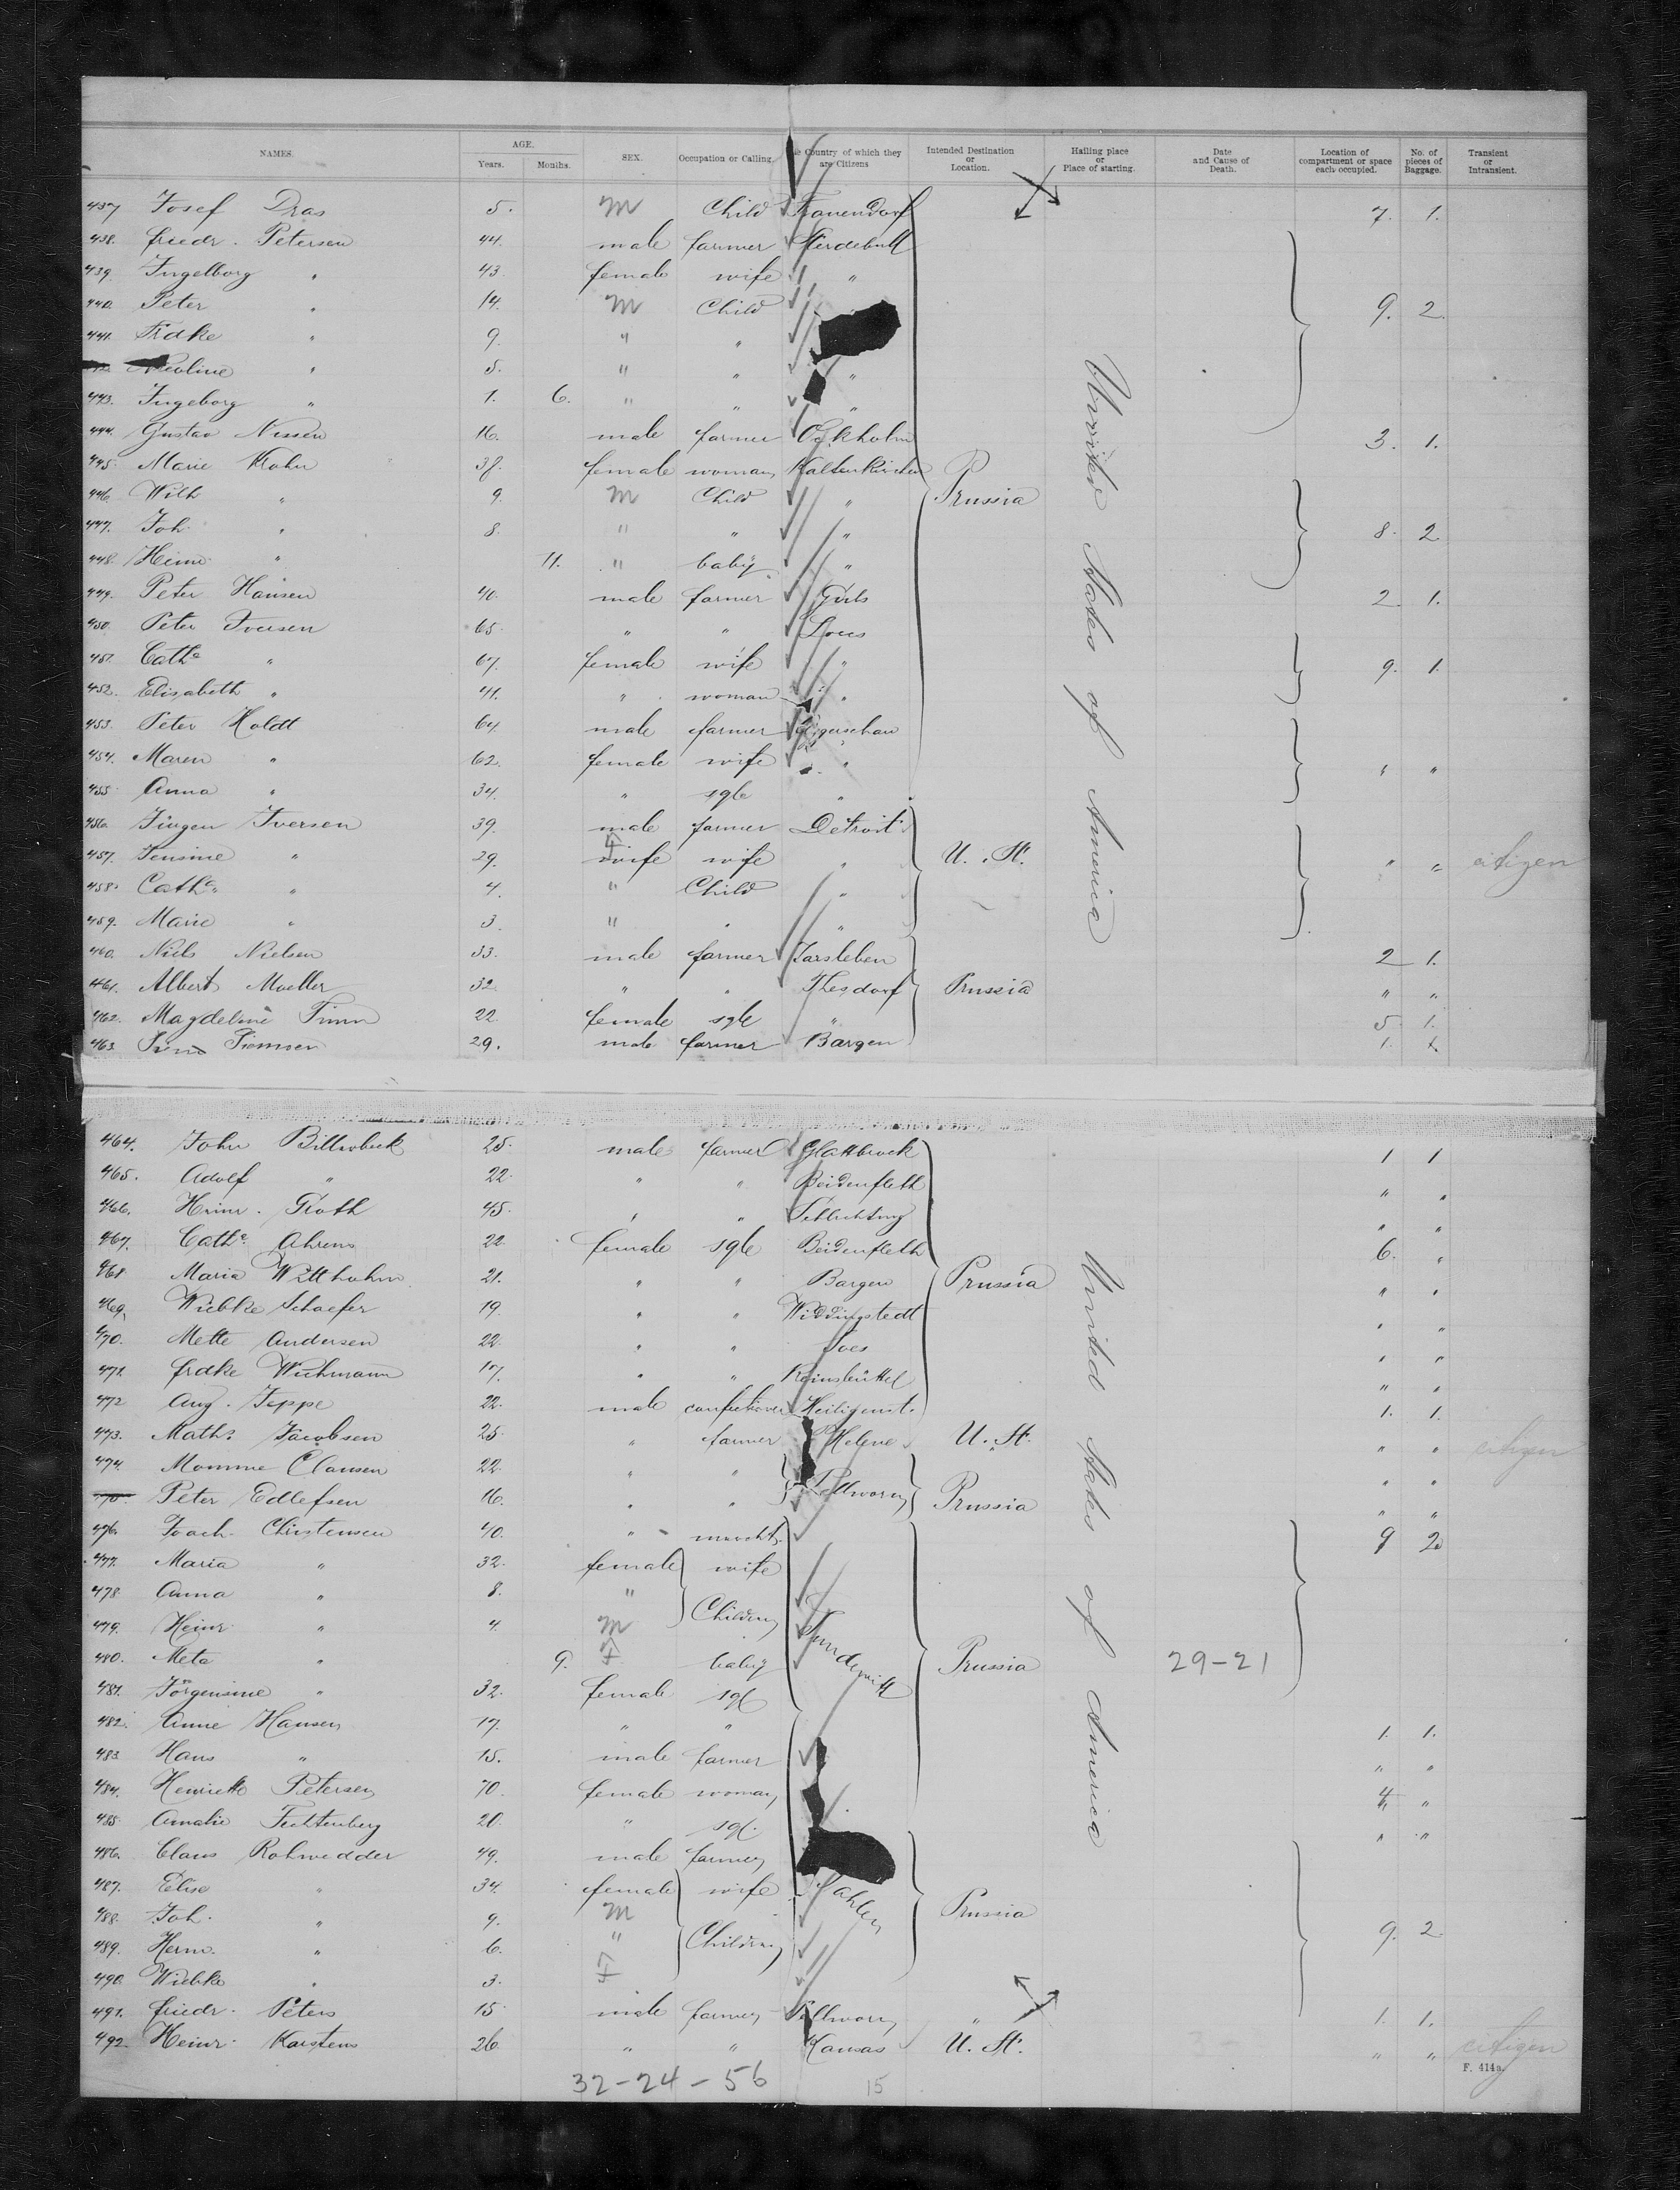 NAMES. AGE. Years. Months. SEX. Occupation or Calling. Country of which they are Citizens Intended Destination or Location. Hailing place or Place of starting. Date and Cause of Death. Location of compartment or space each occupied. No. of pieces of Baggage. Transient or Intransient.
437 Josef Dras 5. M Child Frauendorf 7. 1.
438. friedr. Petersen 44. male farmer
439. Ingelborg " 43. female wife "
440. Peter " 14. M Child 9. 2.
441. Frdke " 9. " "
Nicoline " 5. " " "
443. Ingeborg " 1. 6. " " "
444. Gustav Nissen 16. male farmer Ockholm 3. 1.
445. Marie Krohn 38. female woman Kaltenkirchen
446. Wilh " 9. M Child " Prussia
447. Joh. " 8. " " " 8. 2.
448. Heinr. " 11. " baby "
449. Peter Hansen 40. male farmer 2 1.
450. Peter Iversen 65. " "
451. Cathe " 67. female wife " 9. 1.
452. Elisabeth " 41. " woman "
453. Peter Holdt 64 male farmer
454. Maren " 62. female wife " " "
455. Anna " 34. " sgle "
456. Jürgen Iversen 39. male farmer Detroit
457. Jensine " 29. wife wife " U. St. " " citizen
458. Cathe. " 4. " Child "
459. Marie " 3. " " "
460. Niels Nielsen 33. male farmer Jarsleben 2 1.
461. Albert Mueller 32. " " Thesdorf Prussia " "
462. Magdeline Timm 22. female sgle " 5. 1.
463. 29. male farmer Bargen 1.
United States of America
464. John 25. male farmer Glattbrock 1 1
465. Adolf " 22. " " Beidenfleth " "
466. Heinr. Groth 45. " " Schlichting " "
467. Cathe. Ahrens 22. female sgle Beidenfleth 6. "
468 Maria Witthohn 21. " " Bargen Prussia " "
469. Wiebke Schaefer 19. " " Widdingstedt " "
470. Mette Andersen 22. " " " "
471. frdke Wichmann 17. " " Reinsbüttel " "
472 Aug. Jeppe 22. male confectioner Heiligenst. 1. 1.
473. Maths. Jacobsen 25. " farmer Helene U. St. " " citizen
474. Momme Clausen 22. " " Pellworm " "
Peter Edlefsen 16. " " Prussia " "
476. Joach. Christensen 40. " 9 2
477. Maria " 32. female wife
478. Anna " 8. " Children
479. Heinr. " 4. M
480. Meta " 9. F baby Prussia 29-21
481. Jörgensine " 32. female sgl
482. Anne Hansen 17. " " 1. 1.
483. Hans " 15. male farmer " "
484. Henriette Petersen 70. female woman 4. "
485. Amalie Fechtenberg 20. " sgl. " "
486. Claus Rohwedder 49. male farmer
487. Elise " 34. female wife
488. Joh. " 9. M Prussia
489. Herm. " 6. " Children 9. 2
490. Wiebke " 3. F
491. friedr. Peters 15. male farmer Pellworm " 1. 1.
492. Heinr. Karstens 26. " " Kansas U. St. " " citizen
United States of America
F. 414a.
32-24-56 15